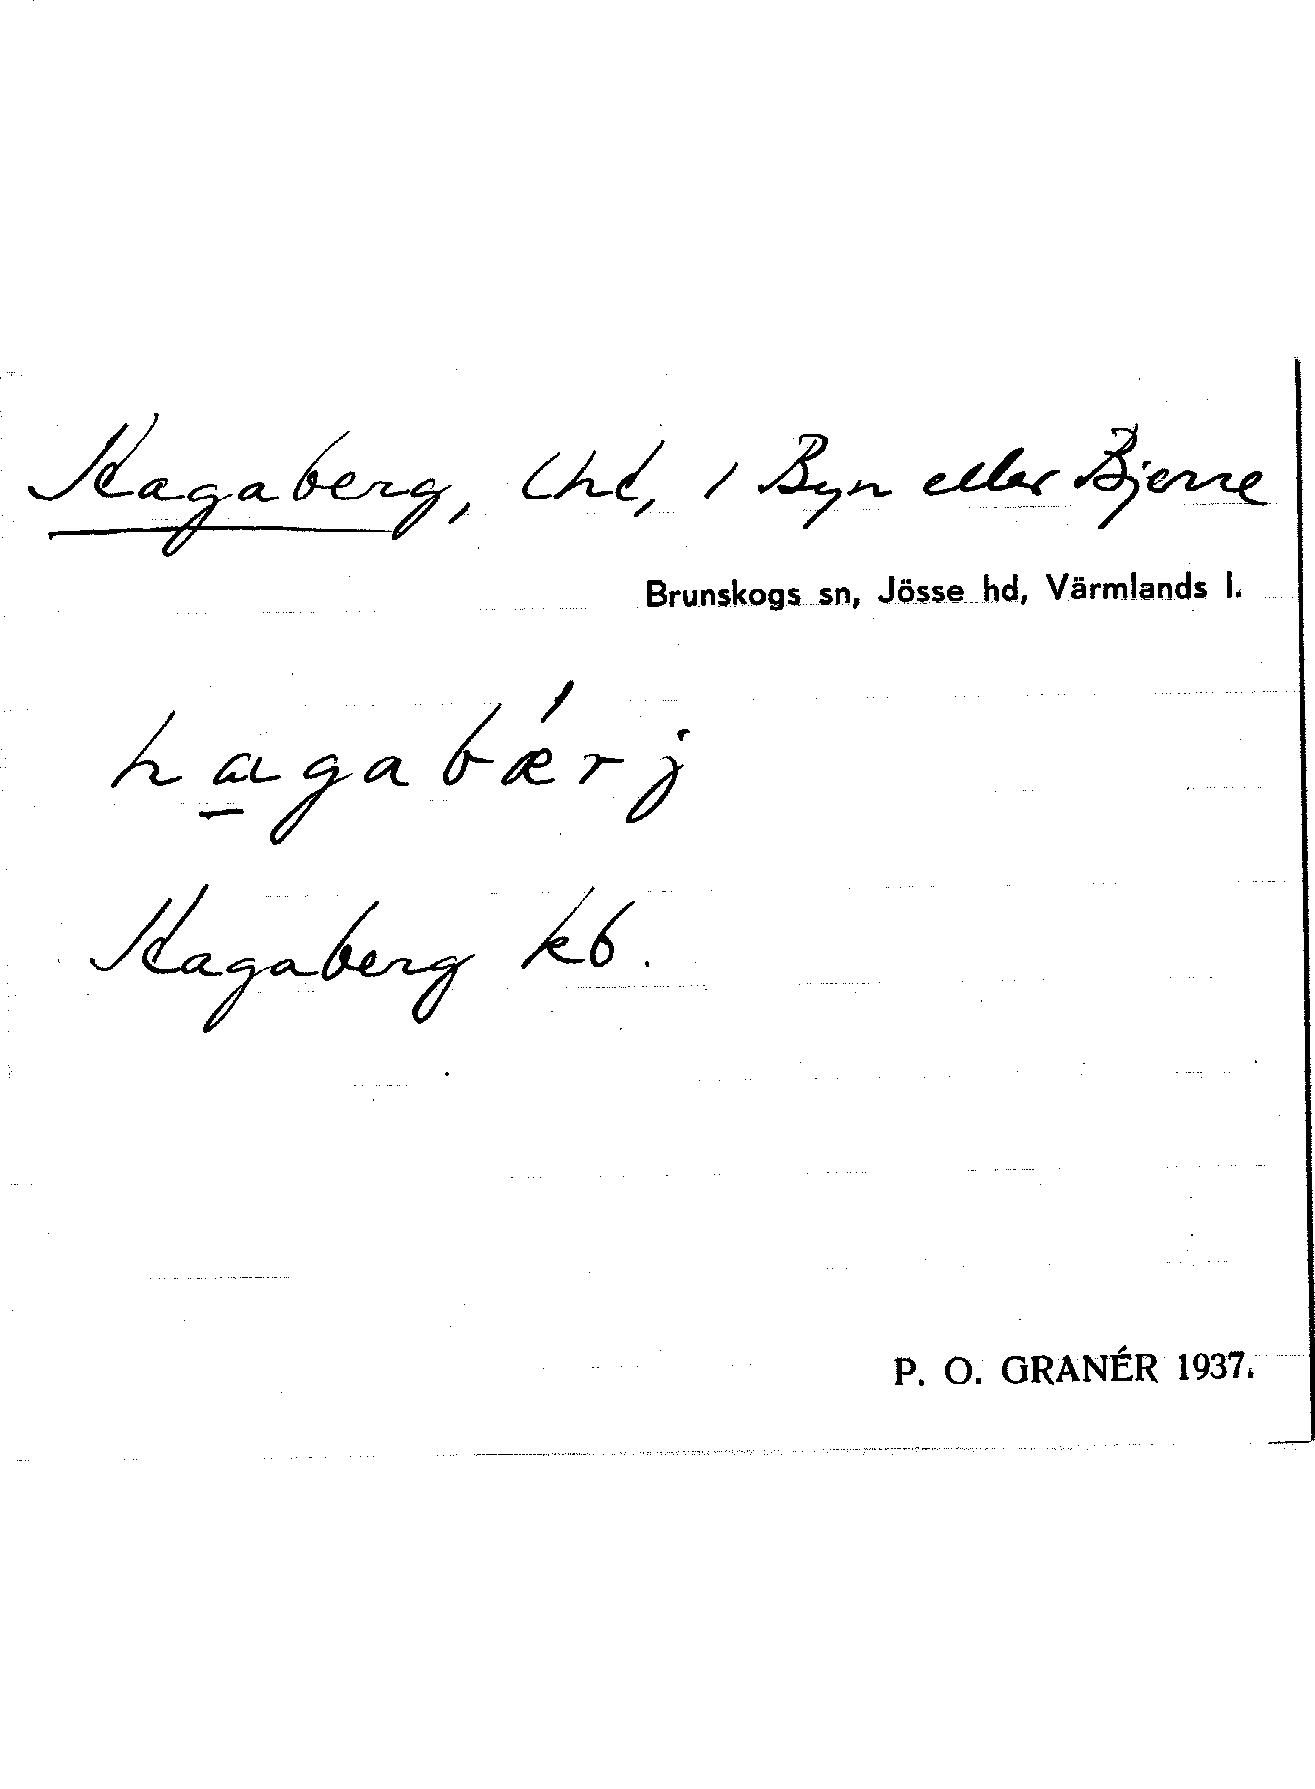 Hagaberg, lht, i Byn eller Bjerre
Brunskogs sn, Jösse hd, Värmlands l.
hagabǽrj
Hagaberg kb.
P. O. GRANÉR 1937.